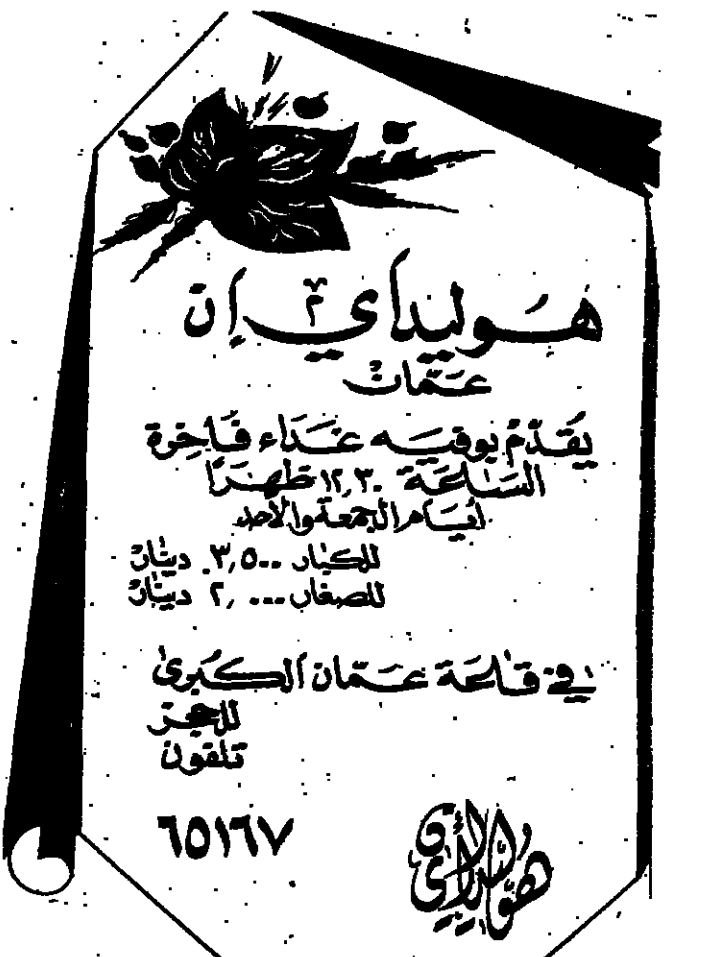 هوليداي إن
عمّان
يقدّم بوفيه غداء فاخرة
الساعة ١٢,٣٠ ظهرًا
أيام الجمعة والأحد
للكبار ٣,٥٠٠ دينار
للصغار ٢,٠٠٠ دينار
في قاعة عمّان الكبرى
للحجز
تلفون
٦٥١٦٧
هوليداي إن